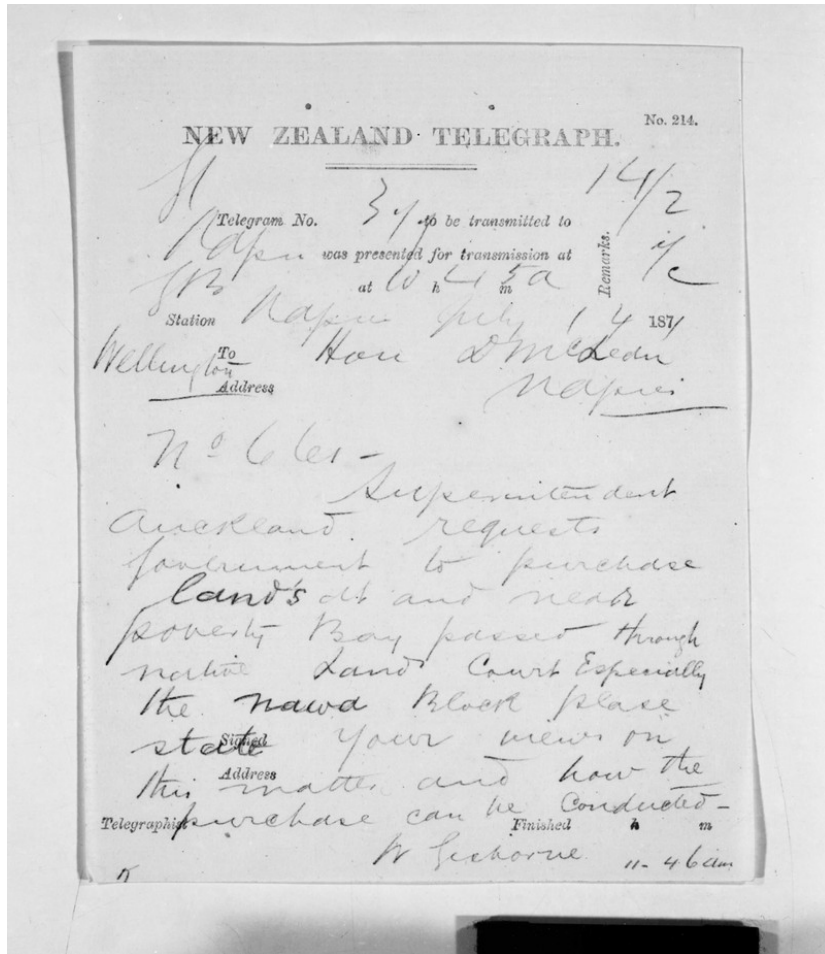 No. 214.
NEW ZEALAND TELEGRAPH.
14/2
Telegram No. 37 to be transmitted to
Napier was presented for transmission at
Remarks.
at 10 h 45 m a
Station Napier July 14 1871
Wellington To Hon D McLean
Address Napier
No 661 -
Superintendent
Auckland requests
Government to purchase
land's at and near
poverty Bay passed through
native Land Court Especially
the Block please
state Signed your views on
this Address matter and how the
purchase can be Conducted -
Telegraphist Finished h m
W Gisborne 11-46 am